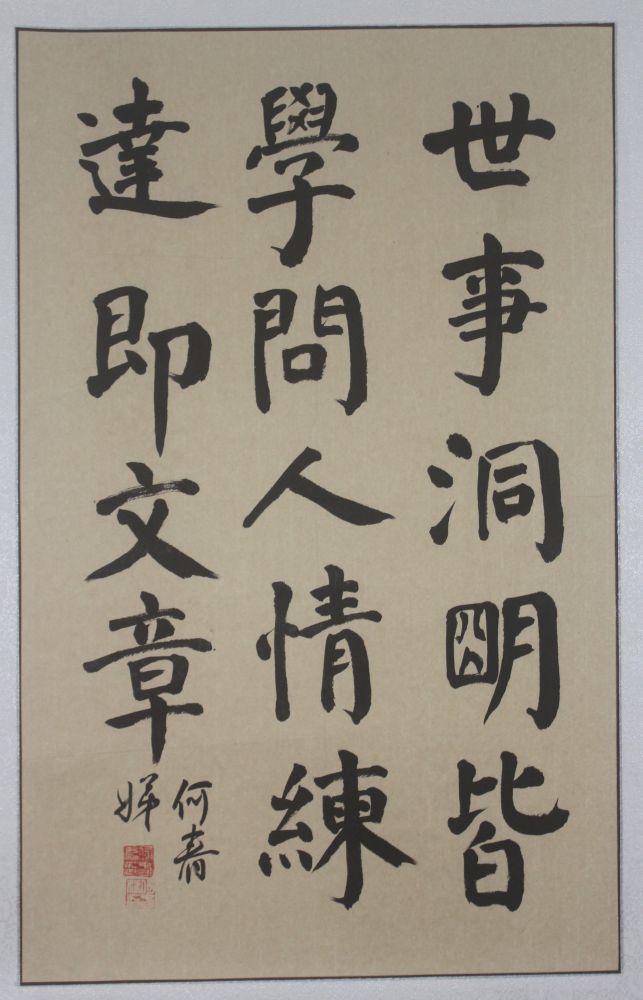 世事洞明皆
學問人情練
達即文章
何青
娣